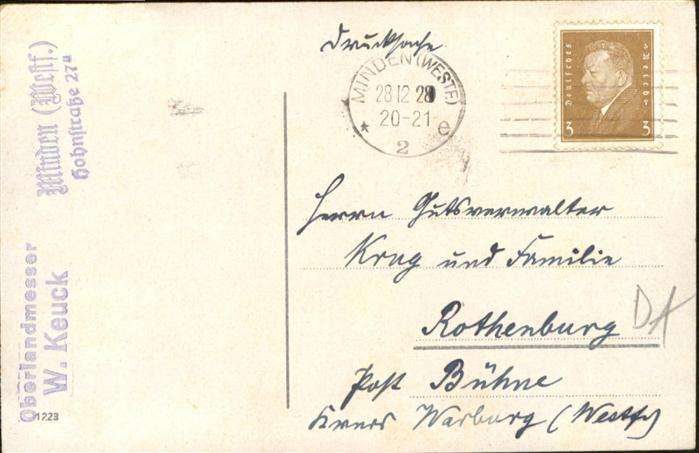 Oberlandmesser
W. Keuck
Minden (Westf.)
Hohnstraße 27a
1223
Drucksache
MINDEN (WESTF)
28 12 28
20-21
* 2 e
Deutsches Reich
3 3
Herrn Gutsverwalter
Krug und Familie
Rothenburg
Post Bühne
Kreis Warburg (Westf)